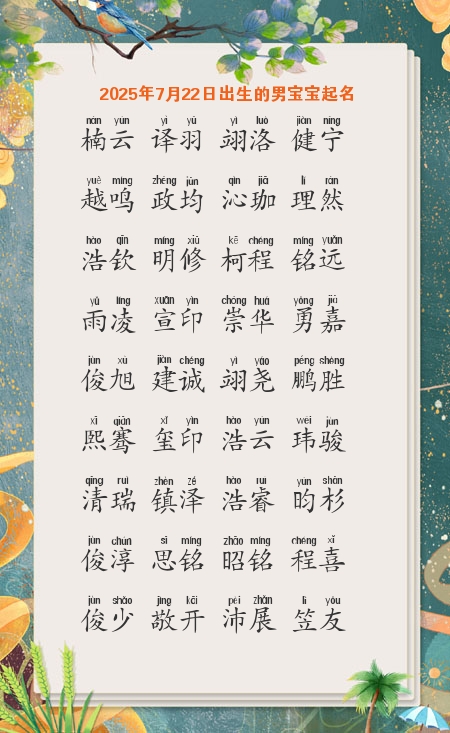 2025年7月22日出生的男宝宝起名
nán yún yì yǔ yì luò jiàn níng
楠云 译羽 翊洛 健宁
yuè míng zhèng jūn qìn jiā lǐ rán
越鸣 政均 沁珈 理然
hào qīn míng xiū kē chéng míng yuǎn
浩钦 明修 柯程 铭远
yǔ líng xuān yìn chóng huá yǒng jiā
雨凌 宣印 崇华 勇嘉
jùn xù jiàn chéng yì yáo péng shèng
俊旭 建诚 翊尧 鹏胜
xī qiān xǐ yìn hào yún wěi jùn
熙骞 玺印 浩云 玮骏
qīng ruì zhèn zé hào ruì yún shān
清瑞 镇泽 浩睿 昀杉
jùn chún sī míng zhāo míng chéng xǐ
俊淳 思铭 昭铭 程喜
jùn shào jìng kāi pèi zhǎn lì yǒu
俊少 敬开 沛展 笠友